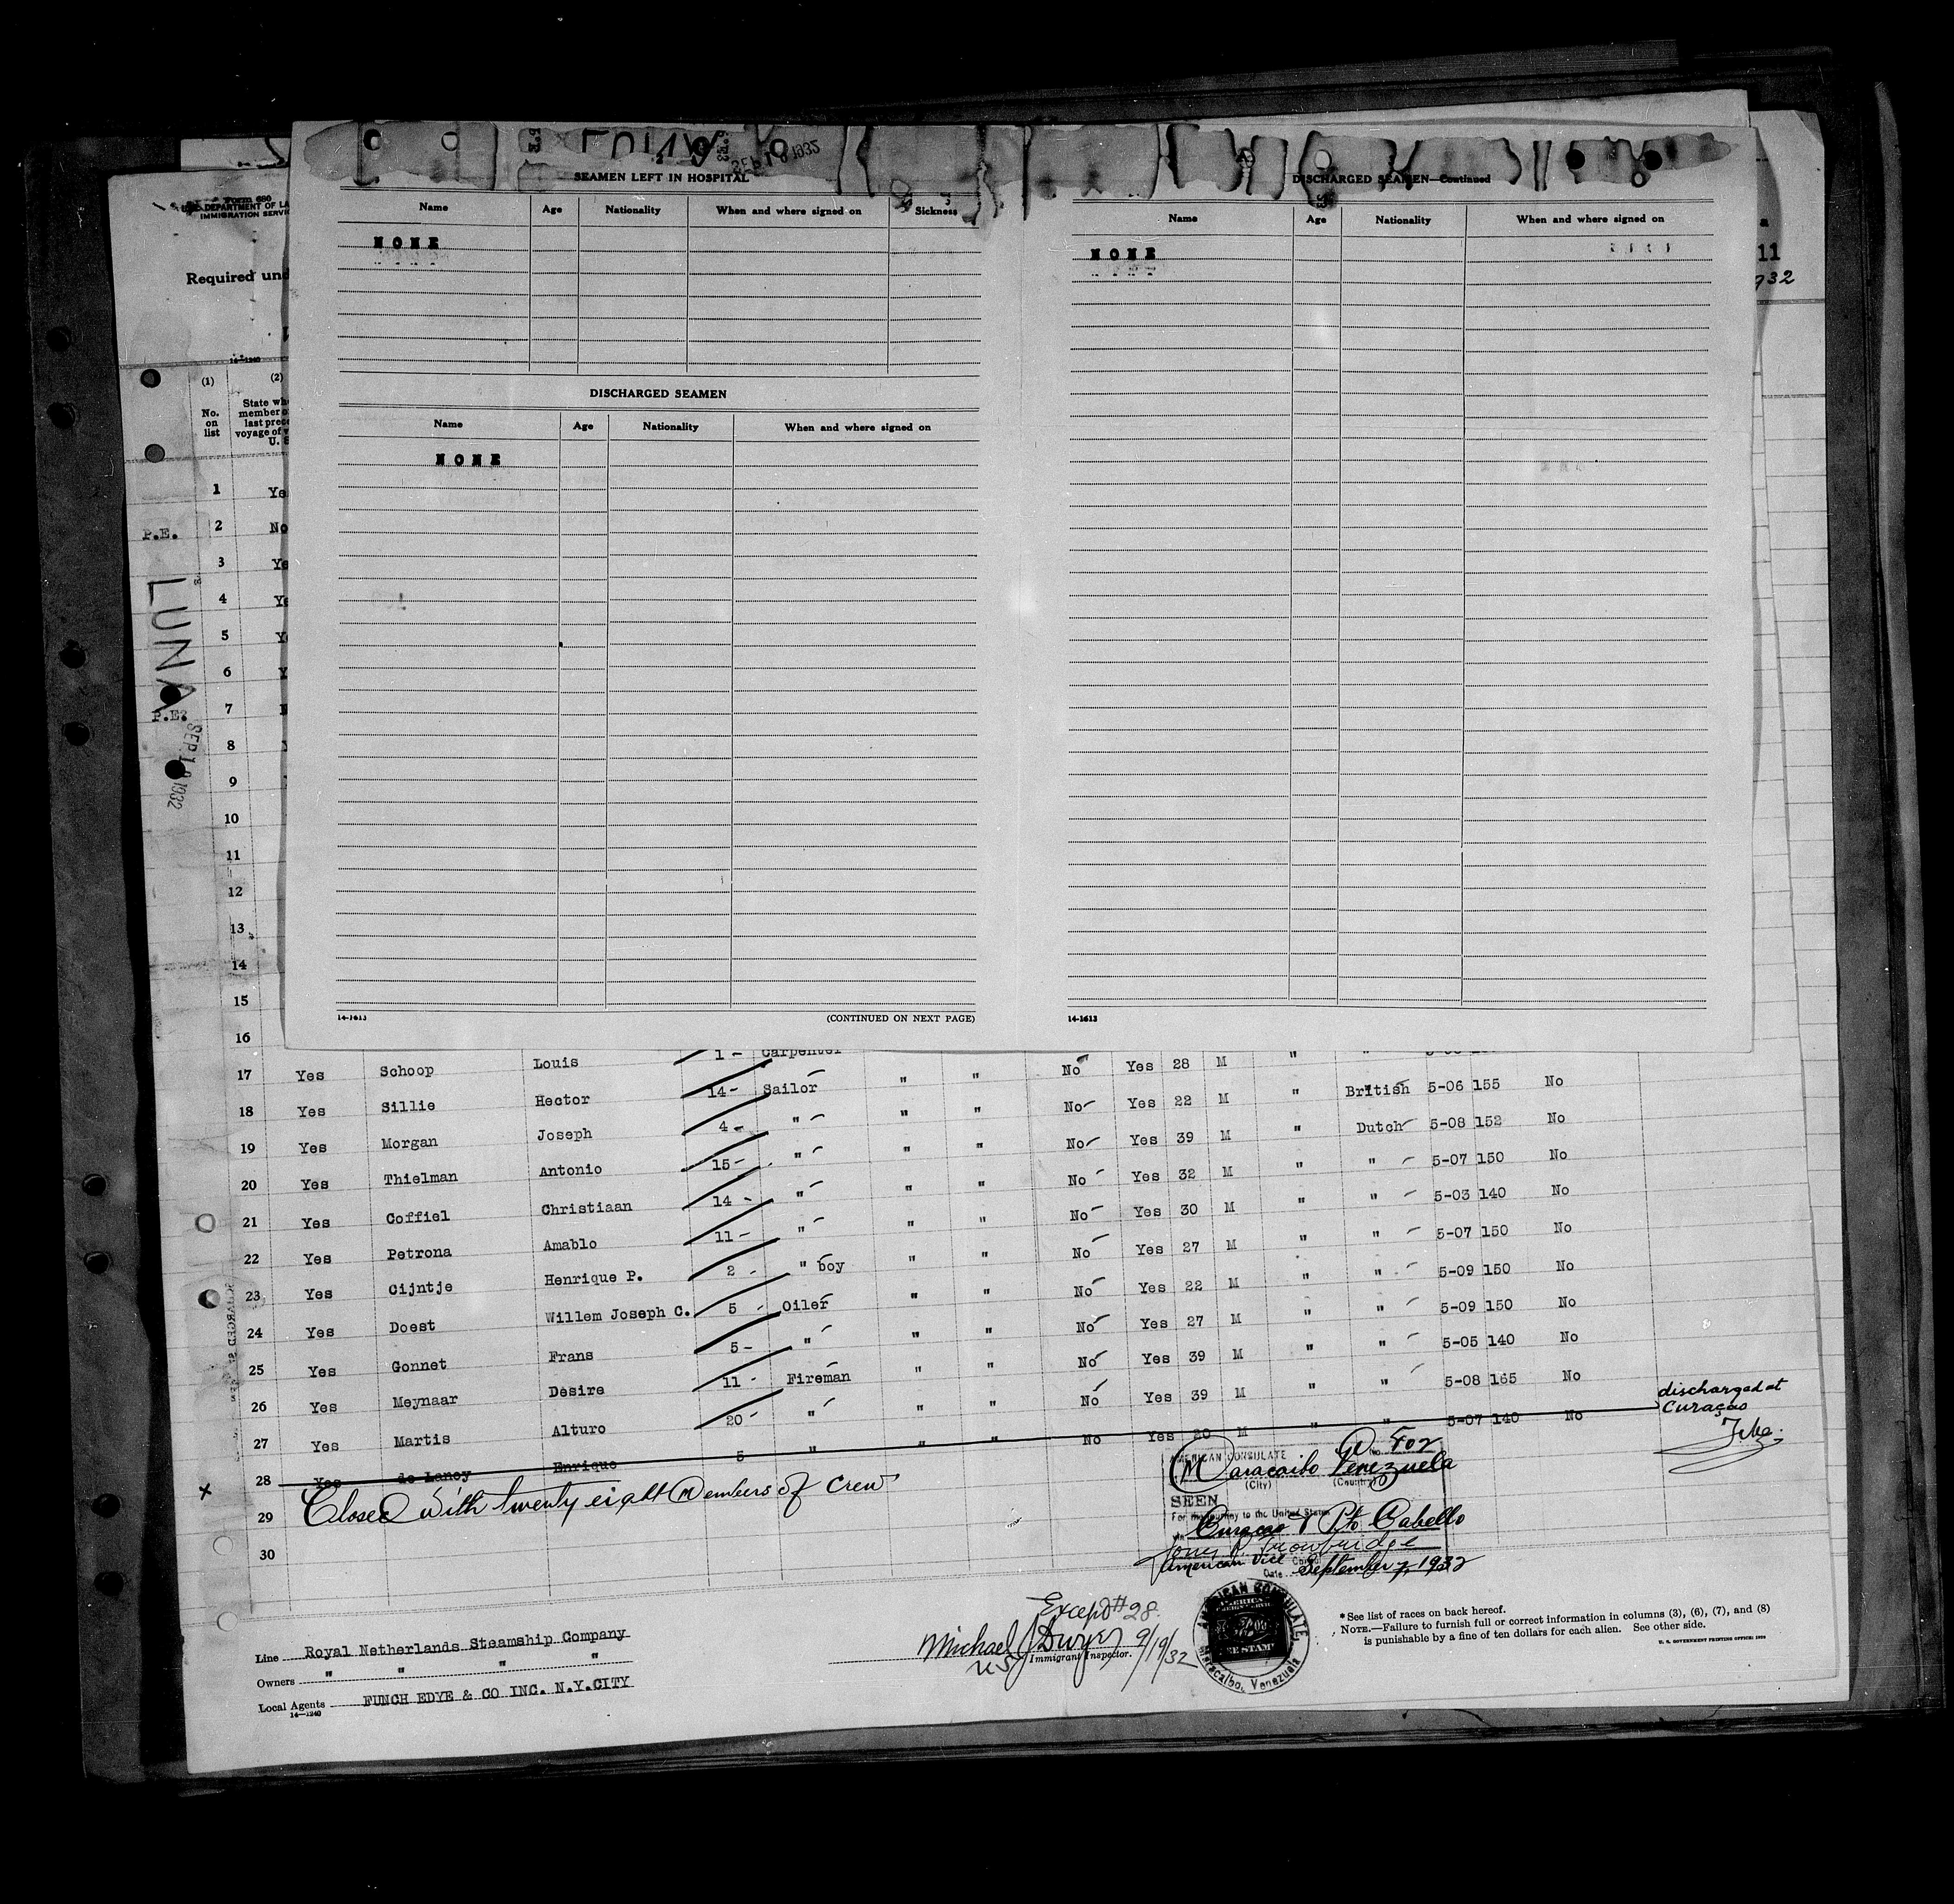 LUNA SEP 19 1932
SEAMEN LEFT IN HOSPITAL
Name Age Nationality When and where signed on Sickness
NONE
DISCHARGED SEAMEN
Name Age Nationality When and where signed on
NONE
14-1613 (CONTINUED ON NEXT PAGE)
DISCHARGED SEAMEN—Continued
Name Age Nationality When and where signed on
NONE
14-1613
Form 680
DEPARTMENT OF LA
IMMIGRATION SERVIC
Required und
11
932
14-1240
(1) (2)
No. on list
State wh
member o
last prec
voyage of
U. S
1 Ye
P.E. 2 No
3 Ye
4 Ye
5 Ye
6 Y
P.E. 7
8
9
10
11
12
13
14
15
16
LUNA
SEP 19 1932
17 Yes Schoop Louis 1- Carpenter " " No Yes 28 M "
18 Yes Sillie Hector 14- Sailor " " No Yes 22 M " British 5-06 155 No
19 Yes Morgan Joseph 4- " " " No Yes 39 M " Dutch 5-08 152 No
20 Yes Thielman Antonio 15- " " " No Yes 32 M " " 5-07 150 No
21 Yes Coffiel Christiaan 14- " " " No Yes 30 M " " 5-03 140 No
22 Yes Petrona Amablo 11- " " " No Yes 27 M " " 5-07 150 No
23 Yes Cijntje Henrique P. 2- " boy " " No Yes 22 M " " 5-09 150 No
24 Yes Doest Willem Joseph C. 5- Oiler " " No Yes 27 M " " 5-09 150 No
25 Yes Gonnet Frans 5- " " " No Yes 39 M " " 5-05 140 No
26 Yes Meynaar Desire 11- Fireman " " No Yes 39 M " " 5-08 165 No
27 Yes Martis Alturo 20- " " " No Yes 20 M " " 5-07 140 No
discharged at
Curaçao
x 28 Yes de Lanoy Enrique 5 "
29 Closed with twenty eight Members of Crew
30
AMERICAN CONSULATE No. 402
Maracaibo Venezuela
(City) (Country)
SEEN
For the journey to the United States
via Curacao & Pto Cabello
American Vice Consul
Date September 7, 1932
AMERICAN CONSULATE,
Maracaibo, Venezuela
Except #28.
Michael J Dwyer 9/19/32
U.S. Immigrant Inspector.
*See list of races on back hereof.
NOTE.—Failure to furnish full or correct information in columns (3), (6), (7), and (8)
is punishable by a fine of ten dollars for each alien. See other side.
U. S. GOVERNMENT PRINTING OFFICE:
Line Royal Netherlands Steamship Company
Owners " " " "
Local Agents FUNCH EDYE & CO INC. N.Y.CITY
14-1240